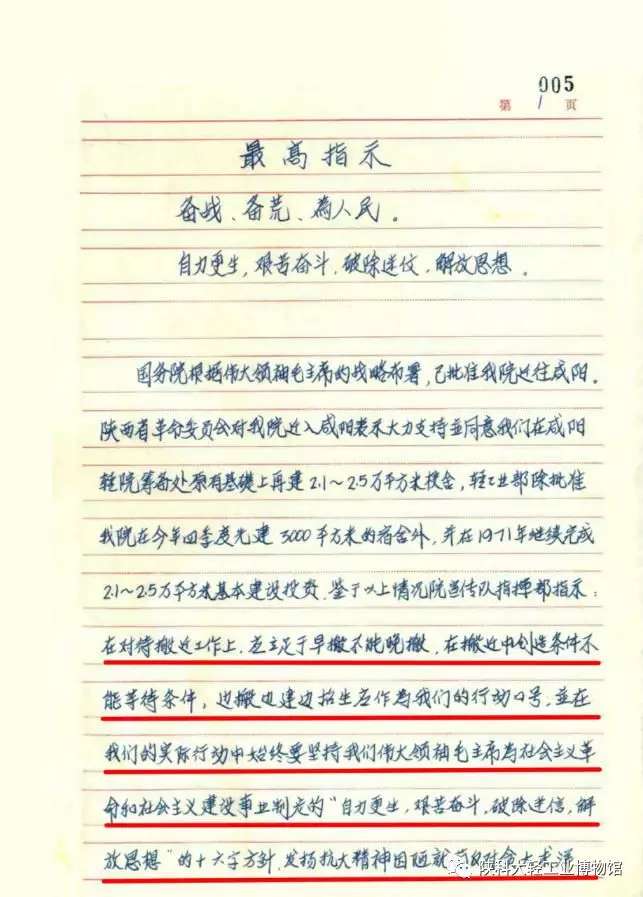 005
第 1 页
最高指示
备战、备荒、為人民。
自力更生,艰苦奋斗,破除迷信,解放思想。
国务院根据伟大领袖毛主席的战略布署,已批准我院迁往咸阳。
陕西省革命委员会对我院迁入咸阳表示大力支持並同意我们在咸阳
轻院筹备处原有基礎上再建2.1~2.5万平方米校舍,轻工业部除批准
我院在今年四季度先建3000平方米的宿舍外,并在1971年继续完成
2.1~2.5万平方米基本建设投资。鉴于以上情况院宣传队指揮部指示:
在对待搬迁工作上,应立足于早搬不能晚搬,在搬迁中创造条件不
能等待条件,边搬边建边招生应作為我们的行动口号,並在
我们的实际行动中始终要坚持我们伟大领袖毛主席為社会主义革
命和社会主义建设事业制定的“自力更生,艰苦奋斗,破除迷信,解
放思想”的十六字方针,发扬抗大精神因陋就简反对贪大求洋
陕科大轻工业博物馆